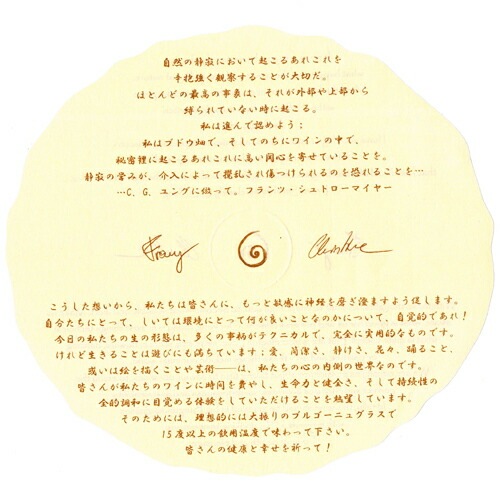 自然の静寂において起こるあれこれを
辛抱強く観察することが大切だ。
ほとんどの最高の事象は、それが外部や上部から
縛られていない時に起こる。
私は進んで認めよう;
私はブドウ畑で、そしてのちにワインの中で、
秘密裡に起こるあれこれに高い関心を寄せていることを。
静寂の営みが、介入によって攪乱され傷つけられるのを恐れることを…
…C. G. ユングに倣って。フランツ・シュトローマイヤー
Franz Christine
こうした想いから、私たちは皆さんに、もっと敏感に神経を磨ぎ澄ますよう促します。
自分たちにとって、しいては環境にとって何が良いことなのかについて、自覚的であれ!
今日の私たちの生の形態は、多くの事柄がテクニカルで、完全に実用的なものです。
けれど生きることは遊びにも満ちています;愛、簡潔さ、静けさ、花々、踊ること、
或いは絵を描くことや芸術──は、私たちの心の内側の世界なのです。
皆さんが私たちのワインに時間を費やし、生命力と健全さ、そして持続性の
全的調和に目覚める体験をしていただけることを熱望しています。
そのためには、理想的には大振りのブルゴーニュグラスで
15度以上の飲用温度で味わって下さい。
皆さんの健康と幸せを祈って!